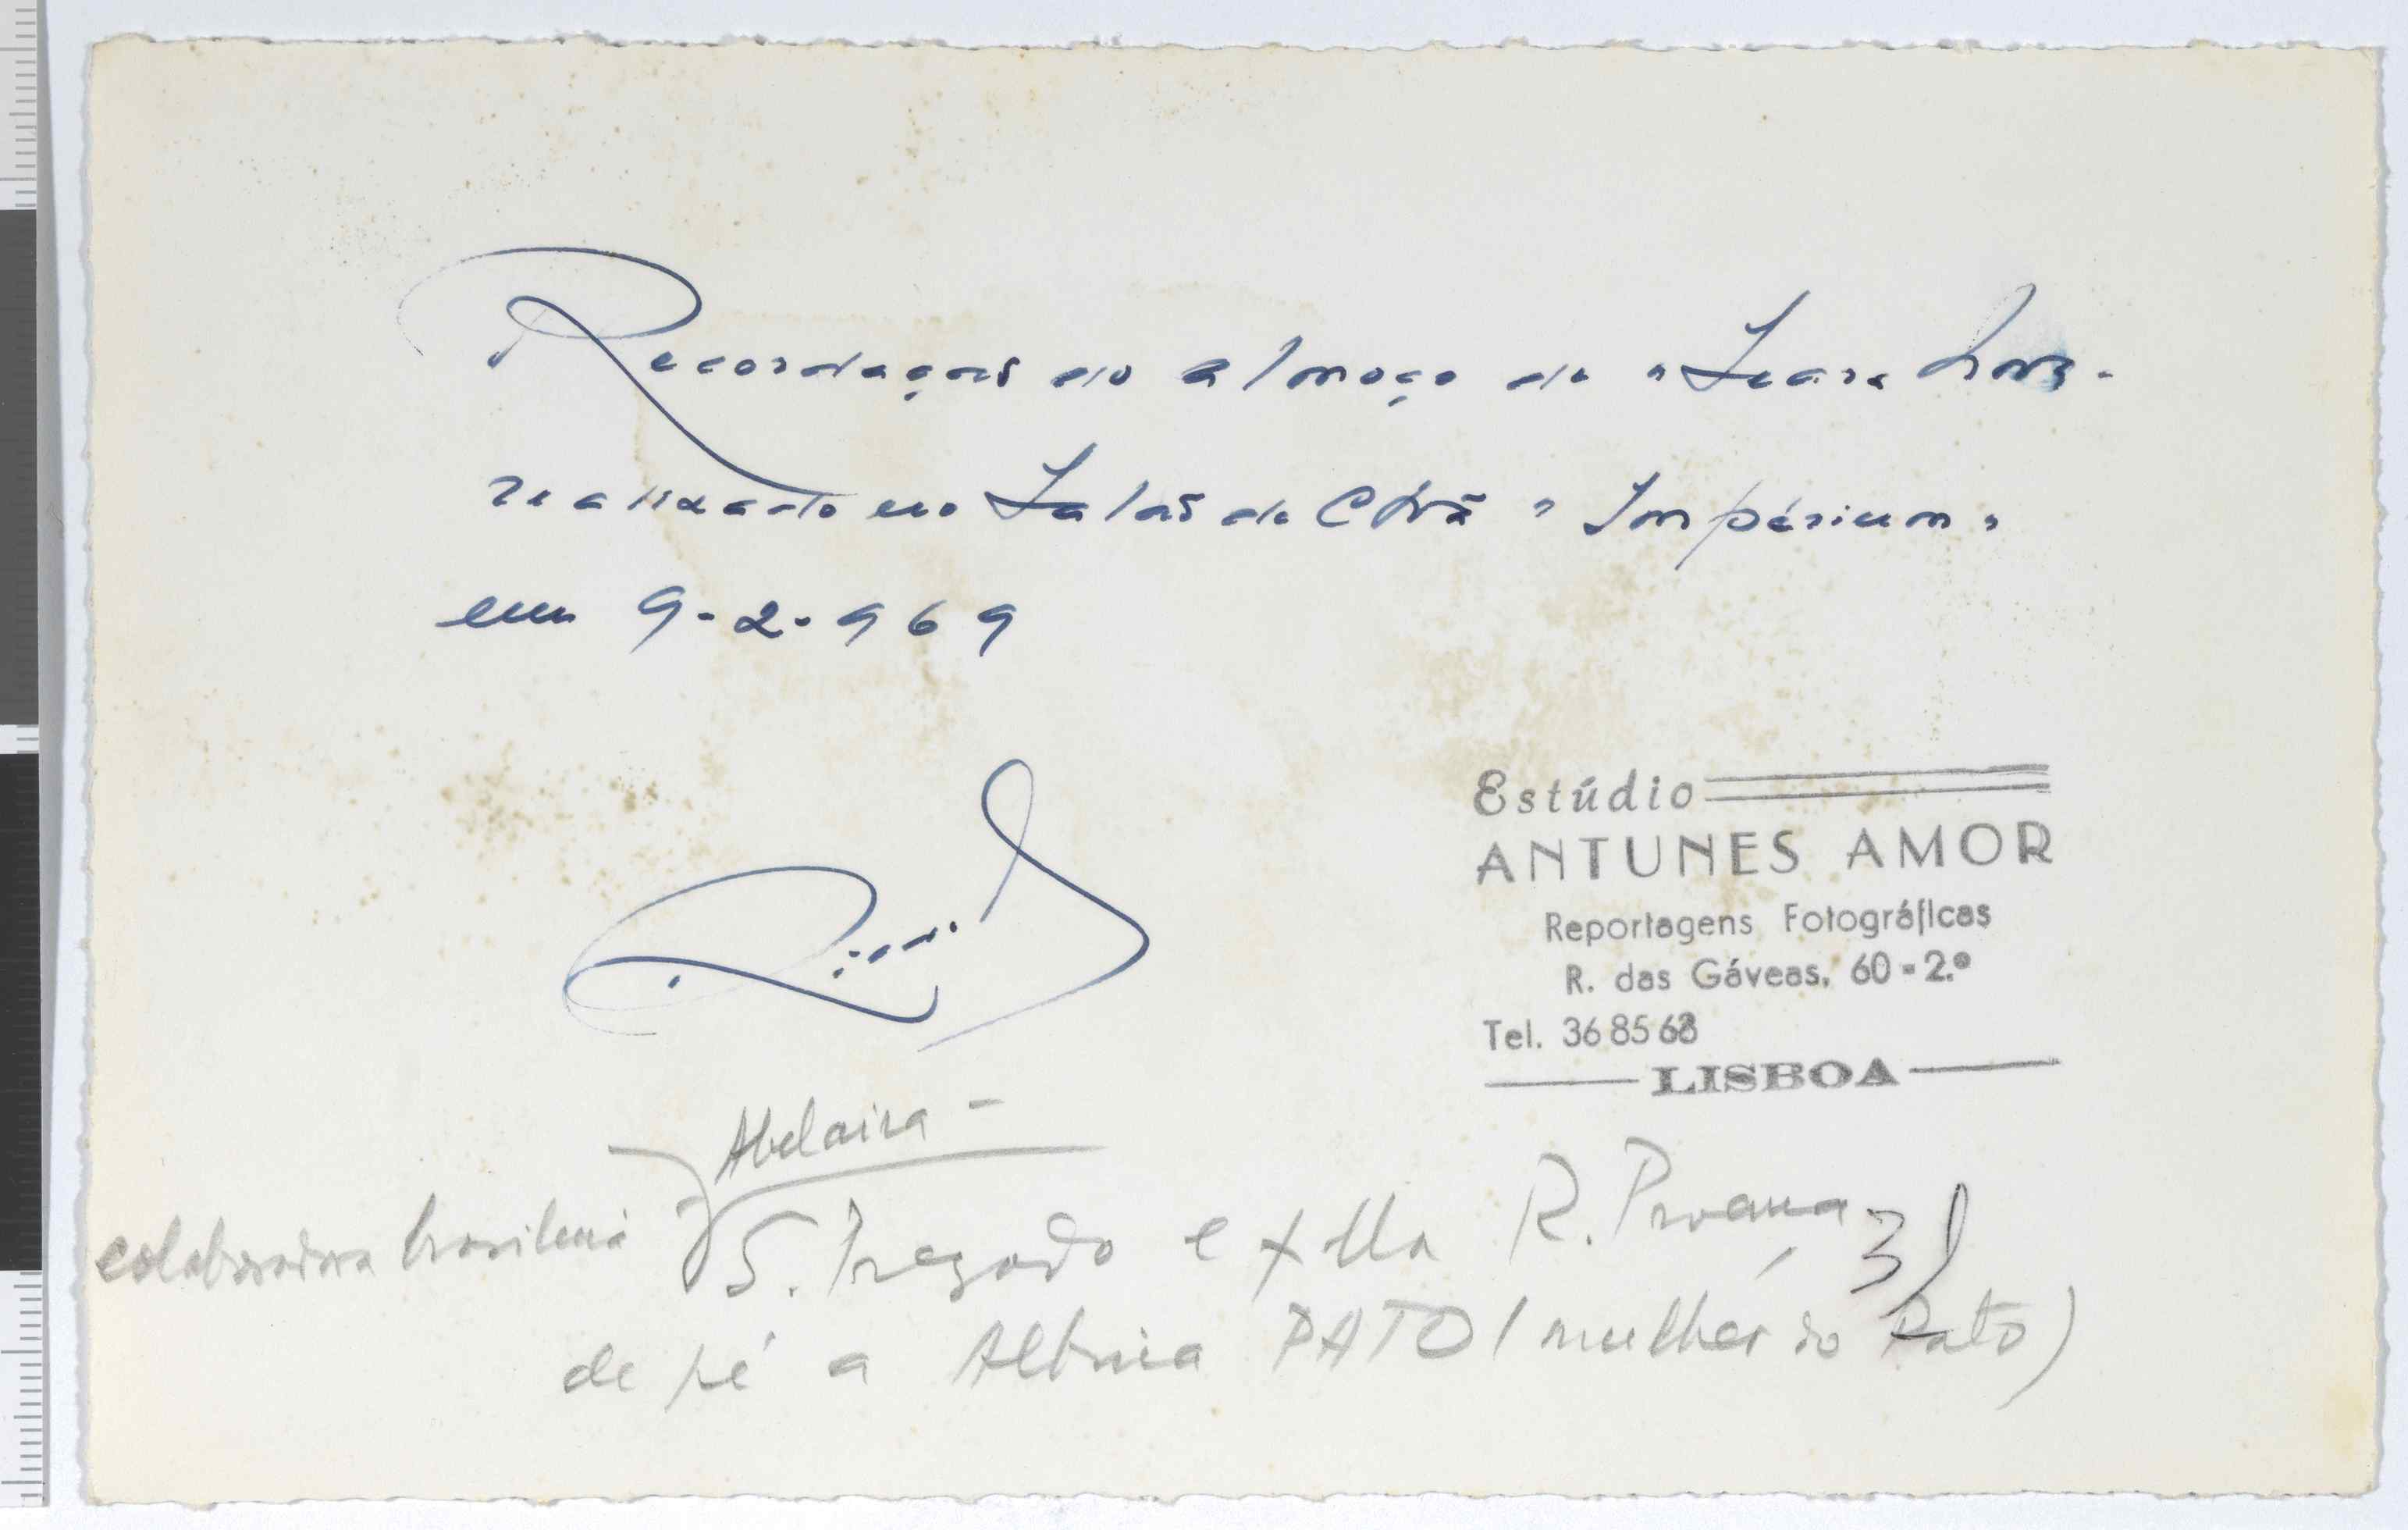 Recordação do almoço da "Seara Nova"
realizado no Salão de Chá "Impérium"
em 9-2-969
Estúdio
ANTUNES AMOR
Reportagens Fotográficas
R. das Gáveas, 60-2.º
Tel. 36 85 68
LISBOA
Abelaira -
colaboradora brasileira
S. Tregado e R. Proença
de pé a Albina PATO (mulher do Pato)